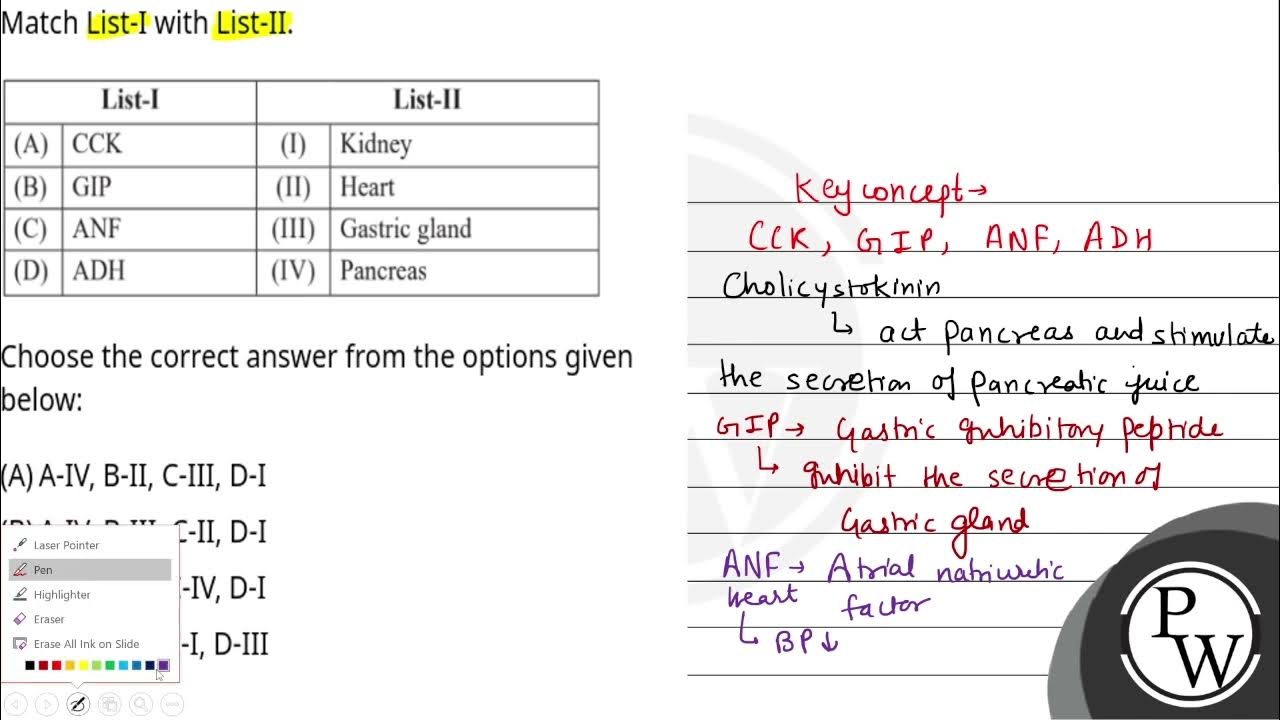 Match List-I with List-II.
List-I List-II
(A) CCK (I) Kidney
(B) GIP (II) Heart
(C) ANF (III) Gastric gland
(D) ADH (IV) Pancreas
Choose the correct answer from the options given
below:
(A) A-IV, B-II, C-III, D-I
C-II, D-I
-IV, D-I
-I, D-III
Laser Pointer
Pen
Highlighter
Eraser
Erase All Ink on Slide
Key concept→
CCK, GIP, ANF, ADH
Cholicystokinin
↳ act pancreas and stimulate
the secretion of pancreatic juice
GIP → Gastric Inhibitory peptide
↳ Inhibit the secretion of
Gastric gland
ANF → Atrial natriuretic
heart factor
↳ BP↓
P
W